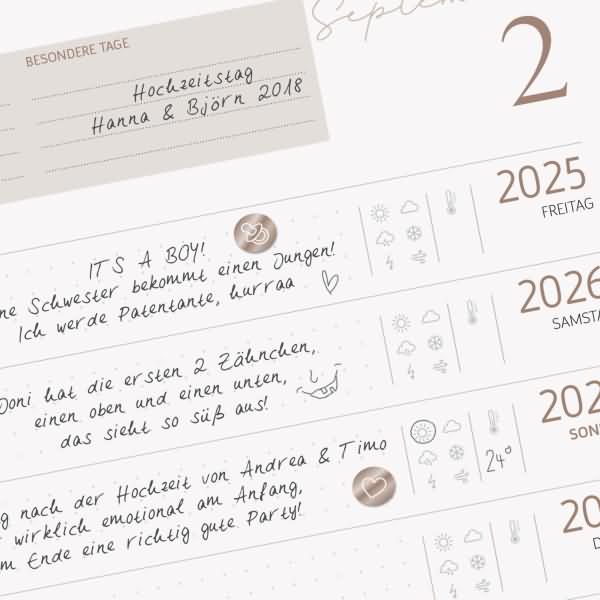 BESONDERE TAGE
Septem
2
Hochzeitstag
Hanna & Björn 2018
2025
FREITAG
IT'S A BOY!
ne Schwester bekommt einen Jungen!
Ich werde Patentante, hurraa
2026
SAMSTA
hat die ersten 2 Zähnchen,
einen oben und einen unten,
das sieht so süß aus!
202
SON
g nach der Hochzeit von Andrea & Timo
wirklich emotional am Anfang,
m Ende eine richtig gute Party!
24°
20
D